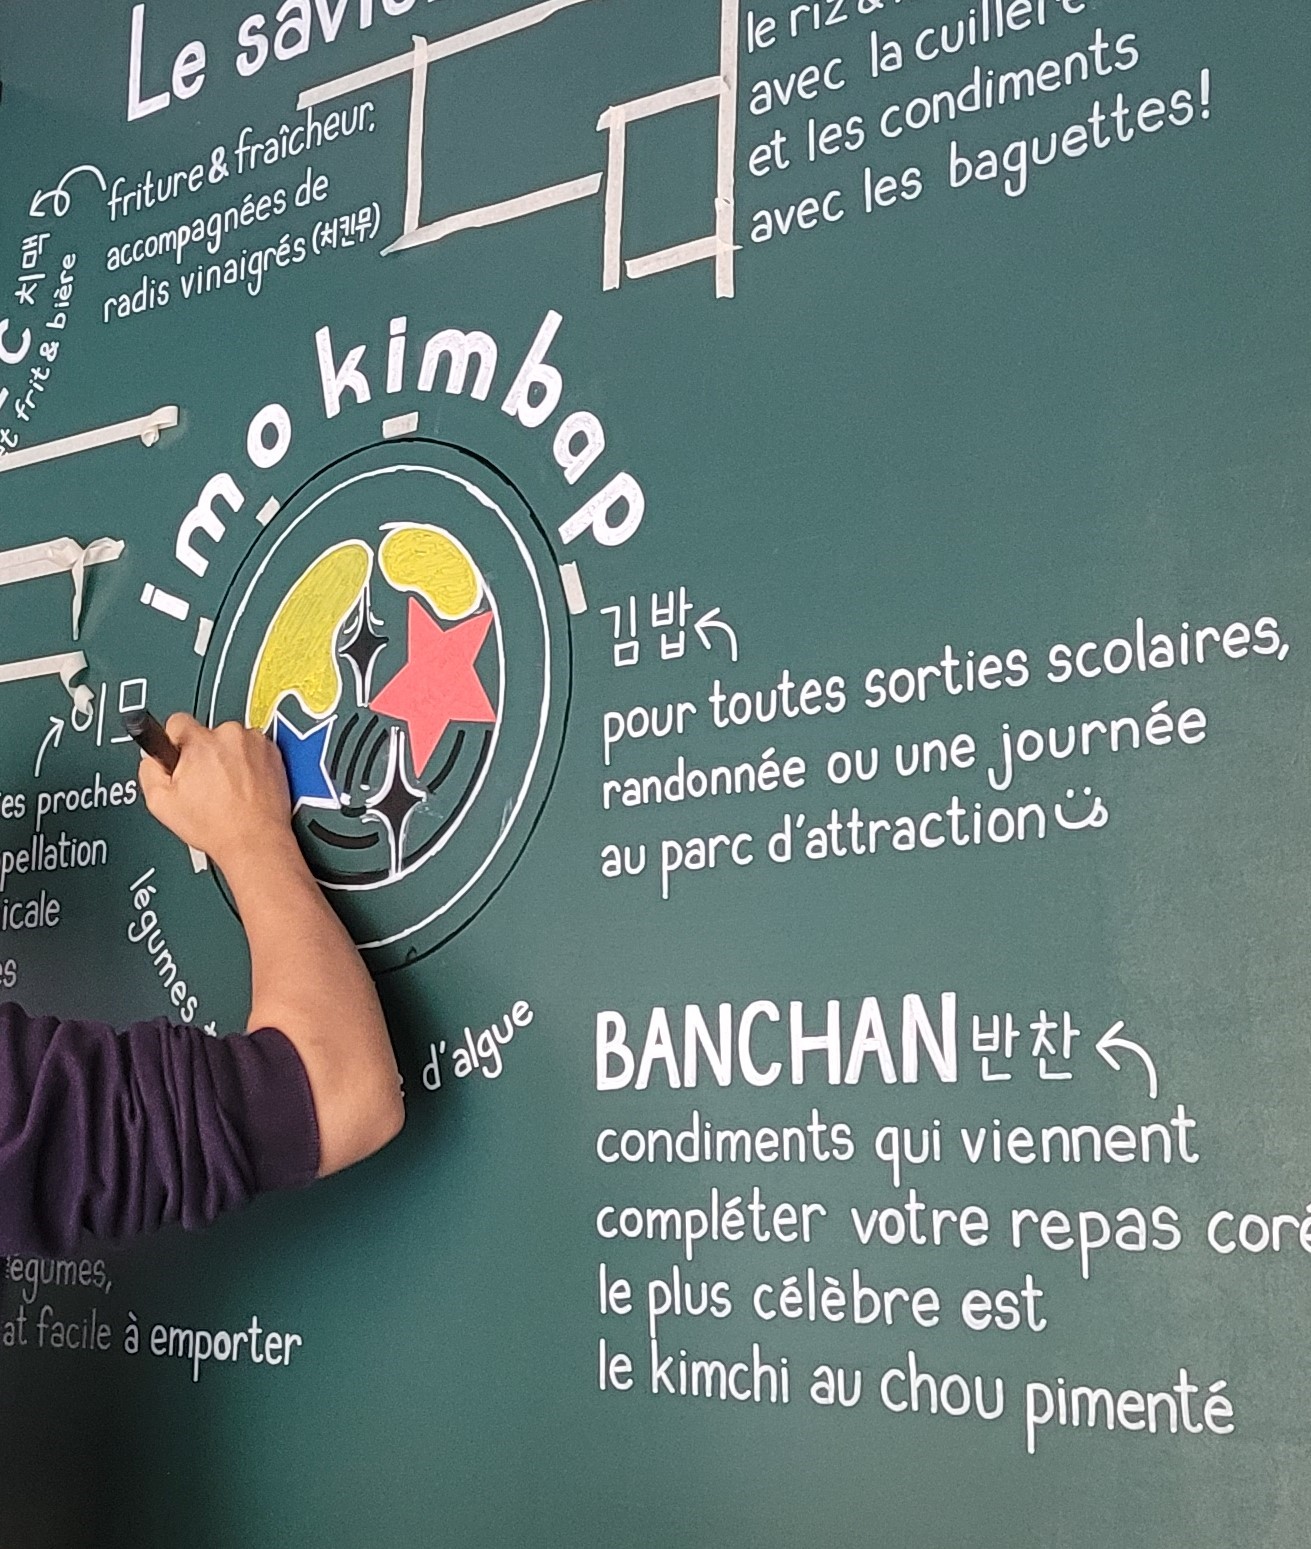 Le
le riz &
avec la cuillère
et les condiments
avec les baguettes!
friture & fraîcheur,
accompagnées de
radis vinaigrés (치킨무)
치맥
frit & bière
imo kimbap
김밥
pour toutes sorties scolaires,
randonnée ou une journée
au parc d'attraction
이모
proches
légumes
d'algue
BANCHAN 반찬
condiments qui viennent
compléter votre repas
le plus célèbre est
le kimchi au chou pimenté
facile à emporter